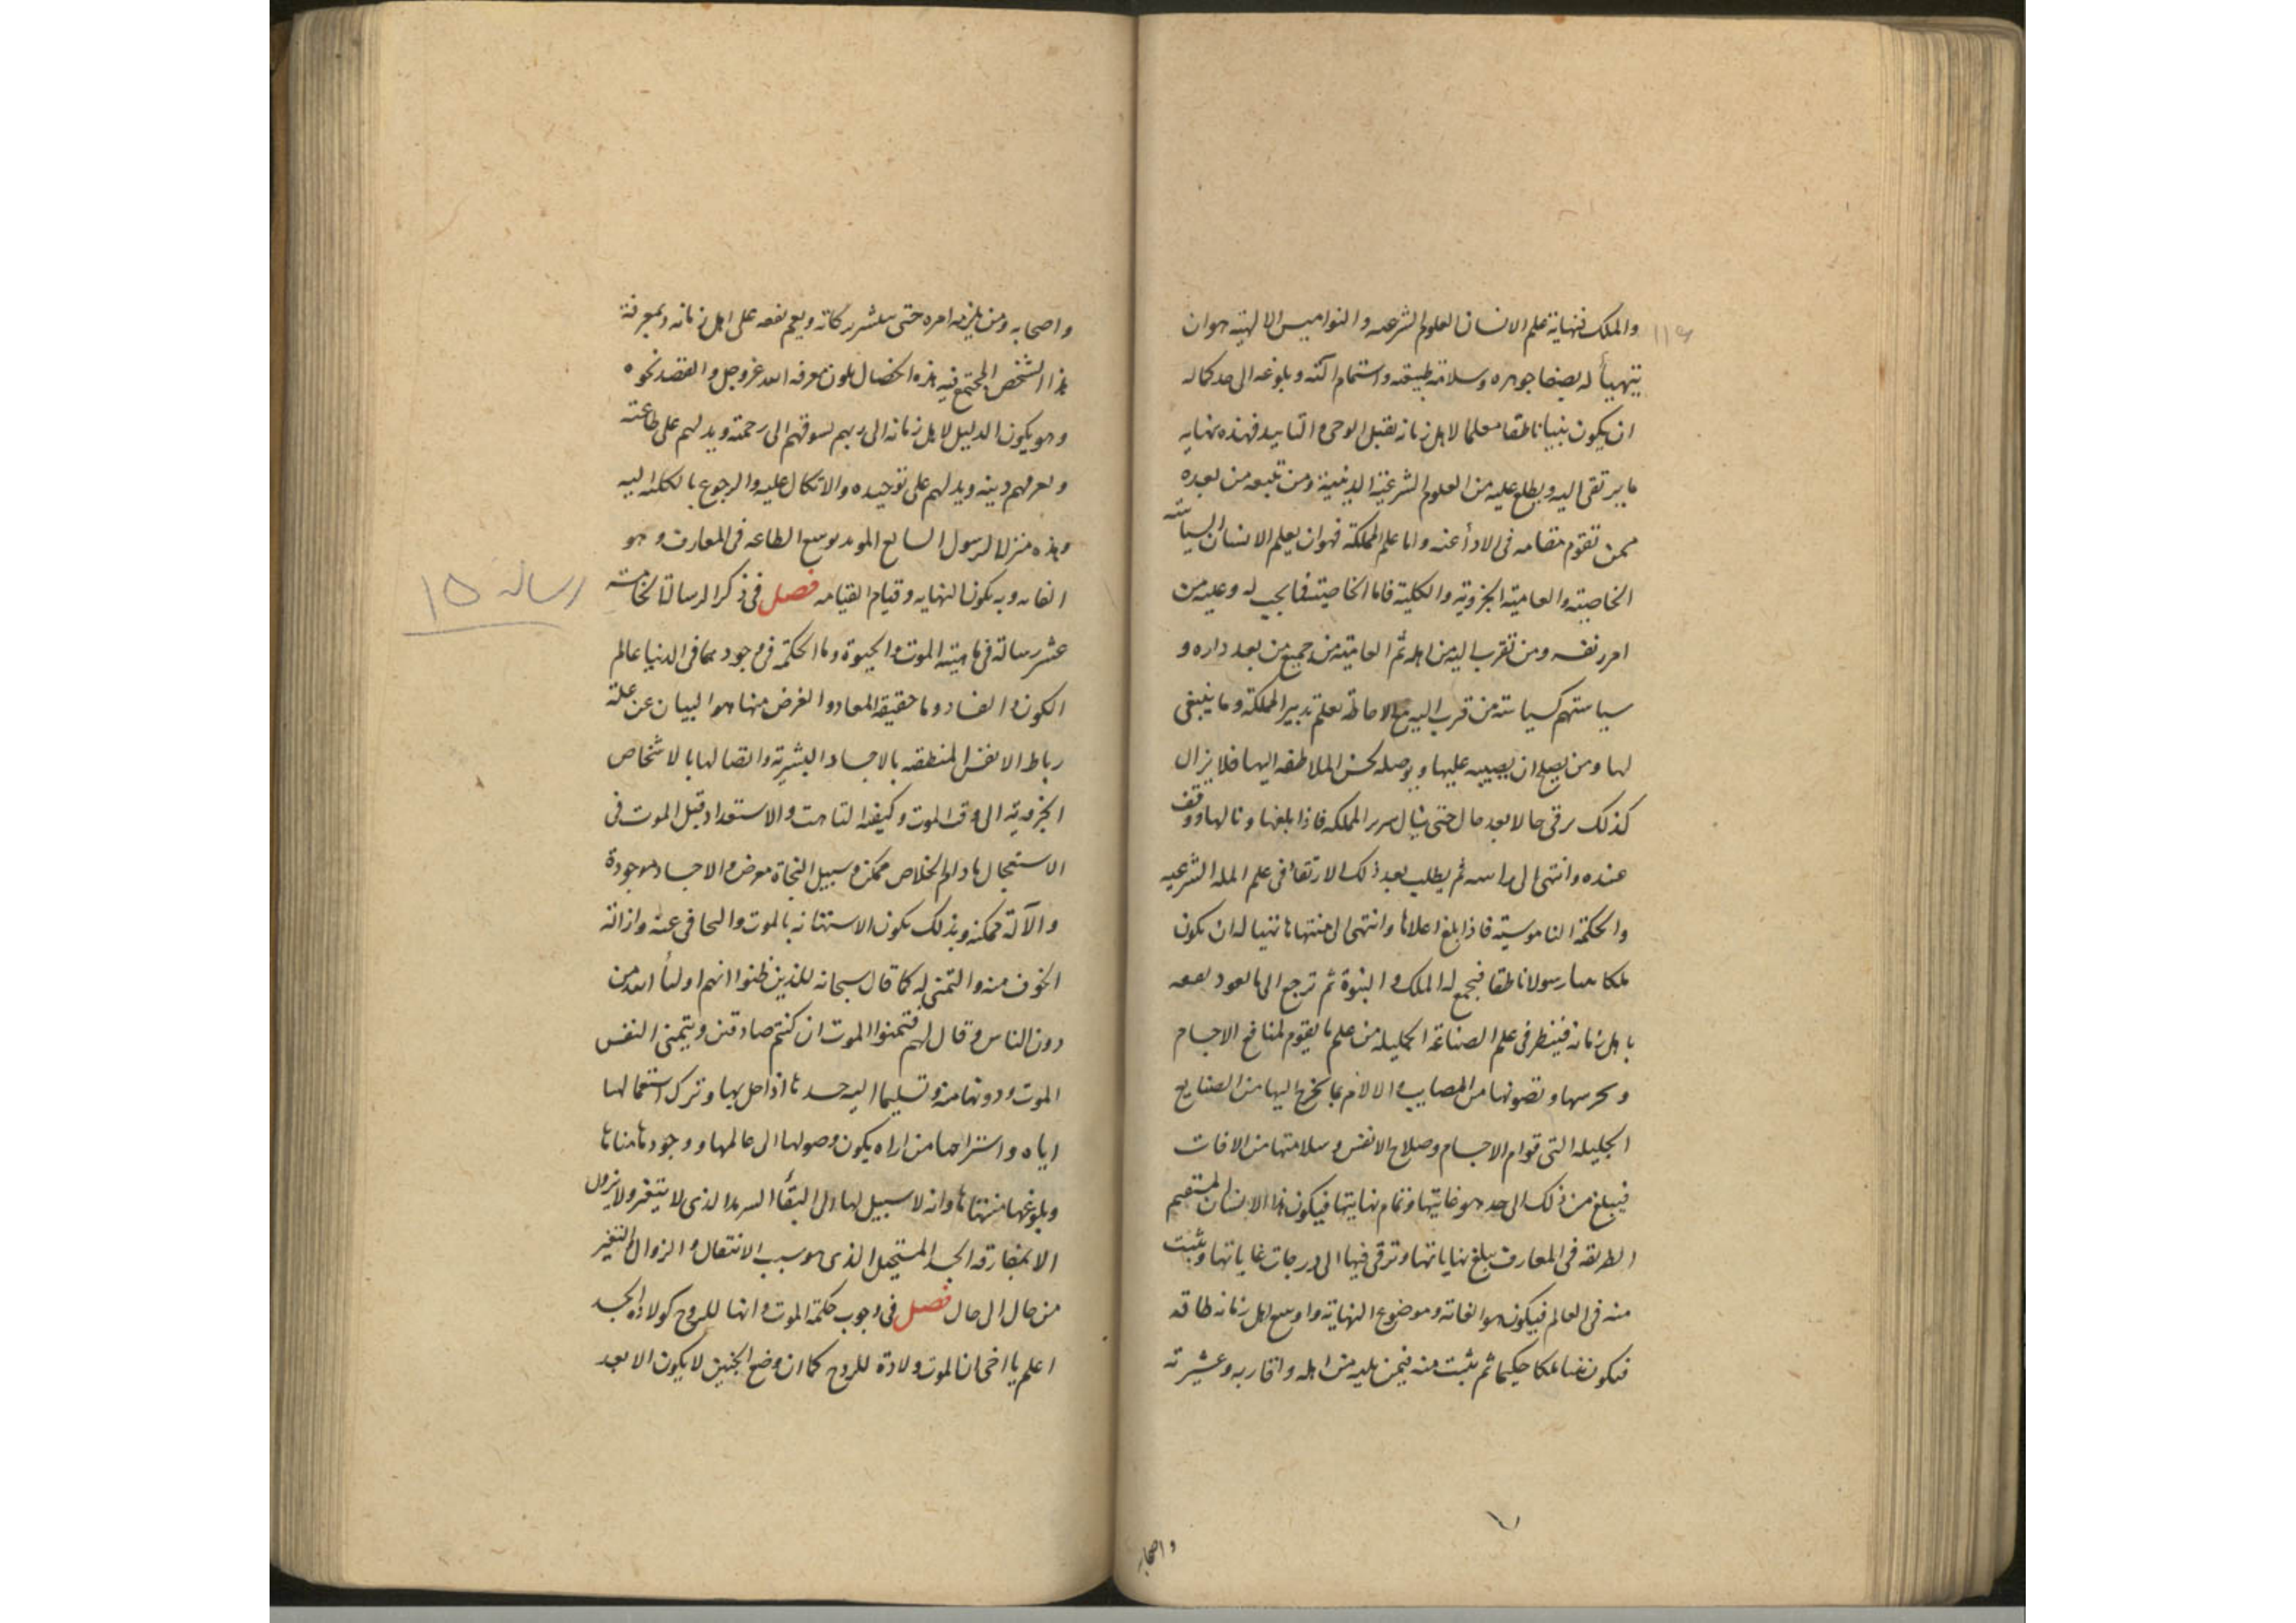 والملك فنهاية علم الانسان العلوم الشرعيه والنواميس الالهية هو ان
يتهيأ له بصفا جوهره وسلامة طبيعته واستتمام آلته وبلوغه الى حد كماله
ان يكون نبيا ناطقا معلما لاهل زمانه بقبل الوحى و التاييد فهذه نهاية
ما يرتقى اليه ويطلع عليه من العلوم الشرعية الدينية ومن تبعه من بعده
ممن تقوم مقامه فى الاداء عنه واما علم المملكة فهو ان يعلم الانسان السياسته
الخاصية والعامية الجزوية والكلية فاما الخاصية فما يجب له وعليه من
امر نفسه ومن تقرب اليه من اهله ثم العامية من جميع من بعد داره و
سياستهم كسياسته من قرب اليه مع الاحاطة بعلم تدبير المملكة وما ينبغى
لها ومن يصلح ان عليها ويوصله بحسن الملاطفه اليها فلا يزال
كذلك يرقى حالا بعد حال حتى ينال سرير المملكه فاذا بلغها ونالها ووقف
عنده وانتهى الى ثم يطلب بعد ذلك الارتقاء فى علم المله الشرعيه
والحكمة الناموسية فاذا بلغ اعلاها وانتهى الى منتهاها تهيا له ان يكون
ملكا رسولا ناطقا فيجمع له الملك و النبوة ثم ترجع الى ما يعود نفعه
باهل زمانه فينظر فى علم الصناعة الجليله من علم ما يقوم لمنافع الاجسام
ويحرسها وتصونها من المصايب والالام بما يخرج اليها من الصنايع
الجليله التى قوام الاجسام وصلاح الانفس وسلامتها من الافات
فيبلغ من ذلك الى حد هو غايتها وتمام نهايتها فيكون هذا الانسان المستقيم
الطريقه فى المعارف يبلغ نهاياتها وترقى فيها الى درجات غاياتها ويثبت
منه فى العالم فيكون هو الغاية وموضوع النهاية واوسع اهل زمانه طاقه
فيكون ملكا حكيما ثم يثبت منه فيمن يليه من اهله واقاربه وعشيرته
واصحابه
واصحابه ومن يلزمه امره حتى ينتشر بركاته ويعم نفعه على اهل زمانه وبمعرفة
هذا الشخص المجتمع فيه هذه الخصال يكون معرفه الله عز وجل والقصد نحوه
وهو يكون الدليل لاهل زمانه الى ربهم يسوقهم الى رحمته ويدلهم على طاعته
ويعرفهم دينه ويدلهم على توحيده والاتكال عليه والرجوع بالكلية اليه
وهذه منزلة الرسول المويد بوسع الطاعه فى المعارف وهو
الغايه وبه يكون النهايه وقيام القيامه فصل فى ذكر الرسالة الخامسته
رساله ١٥
عشر رسالة فى ماهية الموت والحيوة وما الحكمة فى وجودهما فى الدنيا عالم
الكون و الفساد وما حقيقة المعاد والغرض منها هو البيان عن علة
رباط الانفس المنطقه بالاجساد البشرية واتصالها بالاشخاص
الجزوية الى وقت الموت وكيفية التاهب والاستعداد قبل الموت فى
الاستعجال ما دام الخلاص ممكن وسبيل النجاة معرض والاجساد موجودة
والآلة ممكنه وبذلك يكون الاستهانه بالموت والتجافى عنه وازالة
الخوف منه والتمنى له كما قال سبحانه للذين ظنوا انهم اولياء الله من
دون الناس وقال لهم فتمنوا الموت ان كنتم صادقين ويتمنى النفس
الموت ودونها منه وتسليما اليه جسدها اذا حل بها وترك استعمالها
اياه واستراحها من اراه يكون وصولها الى عالمها ووجودها مناها
وبلوغها منتهاها وانه لا سبيل لها الى البقاء السرمد الذى لا يتغير ولا يزول
الا بمفارقة الجسد المستحيل الذى هو سبب الانتقال و الزوال والتغير
من حال الى حال فصل فى وجوب حكمة الموت وانها للروح كولادة الجسد
اعلم يا اخى ان الموت ولادة للروح كما ان وضع الجنين لا يكون الا بعد